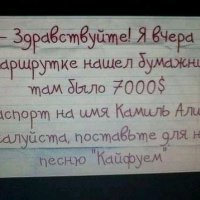 - Здравствуйте! Я вчера
аршрутке нашел бумажни
там было 7000$
аспорт на имя Камиль Али
алуйста, поставьте для н
песню "Кайфуем"